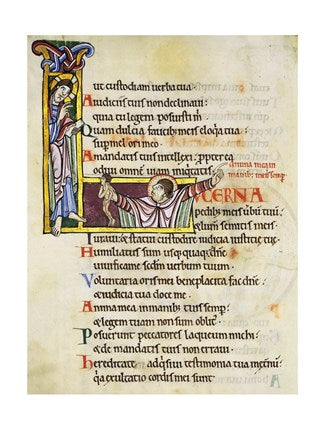 ut custodiam uerba tua:
A iudiciis tuis non declinaui:
quia tu legem posuisti m
Quam dulcia faucibus meis eloquia tua:
super mel ori meo
A mandatis tuis intellexi: propterea
odiui omnem uiam iniquitatis
Anima mea in
manib; meis semp
LVCERNA
pedibus meis uerbum tuum:
lumen semitis meis
Iuraui: & statui custodire iudicia iustitię tuę
Humiliatus sum usquequaque dne:
uiuifica me sedm uerbum tuum.
Voluntaria oris mei beneplacita fac dne:
& iudicia tua doce me
Anima mea in manibus tuis semp:
& legem tuam non sum oblit
Posuerunt peccatores laqueum michi:
& de mandatis tuis non erraui
Hereditate adquisiui testimonia tua in
quia exultatio cordis mei sunt